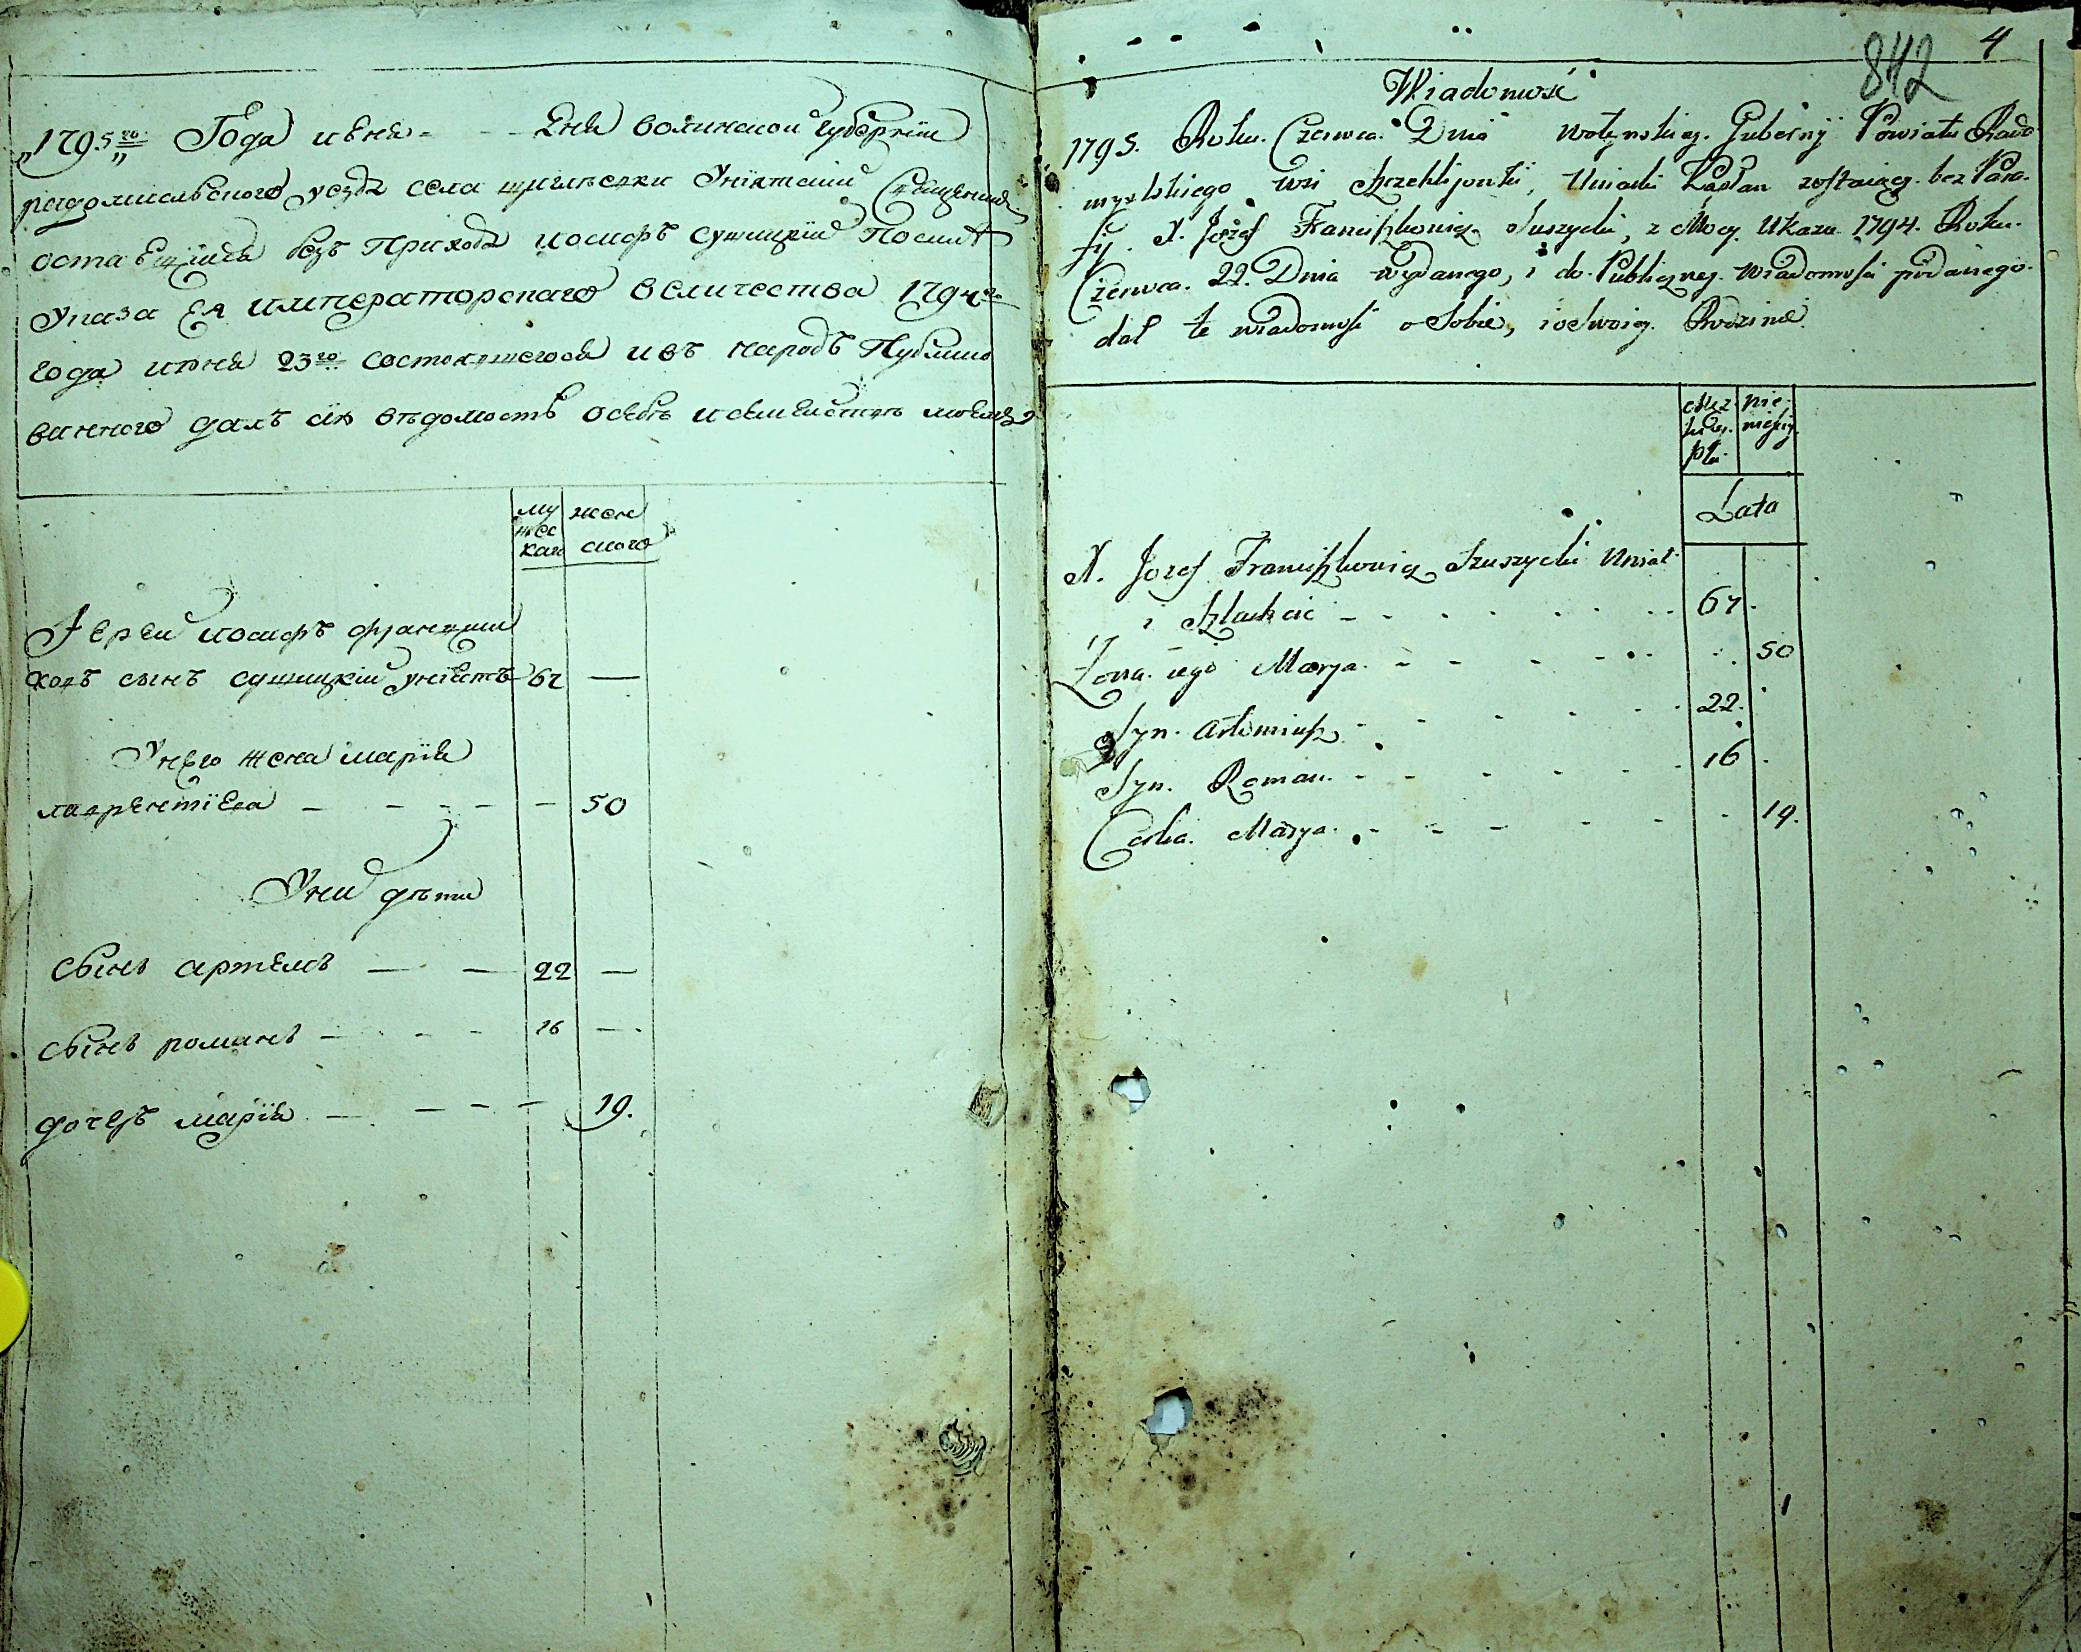 „1795го„ Года июня - - - Дня волинской губернїи
радомисльского уезда села Унїятский Священик
оставшийся безъ Прихода иосифъ сушицкїй По силѣ
Указа Ея императорского величества 1794го
года июня 23го состоявшегося и въ народъ Публико
ванного далъ сїю вѣдомость о себѣ и семействѣ
му
жес
каго
жен
ского
Іерей иосифъ францишковъ
сынъ сушицкїй унїятъ 67 —
У него жена марїя
лаврентїева — - - - — 50
У них дѣти
сынъ артемъ — — 22 —
сынъ романъ — - - - 16 —
дочерь марїя — - - - 19.
842 4
Wiadomość
1795. Roku. Czerwca. Dnia wołynskiey. Gubernÿ Powiatu Rado
myslskiego wsi Uniacki Kapłan zostaiący. bez Para-
fÿ. X. Jozef Franciszkowicz Suszycki, z Mocy Ukazu 1794. Roku.
Czerwca. 22. Dnia wydanego, i do Publiczney. wiadomości podanego.
dał te wiadomość o Sobie, i o Swoiey. Rodzinie.
Mez
kiey.
płci
nie-
wieyściey.
Lata
X. Jozef Franciszkowicz Szuszycki Uniat
i Szlachcic - - - - - - 67.
Żona iego Marya. - - - - - 50
Syn. Artomiusz - - - - - 22.
Syn. Roman. - - - - - 16
Corka. Marya. - - - - - - 19.